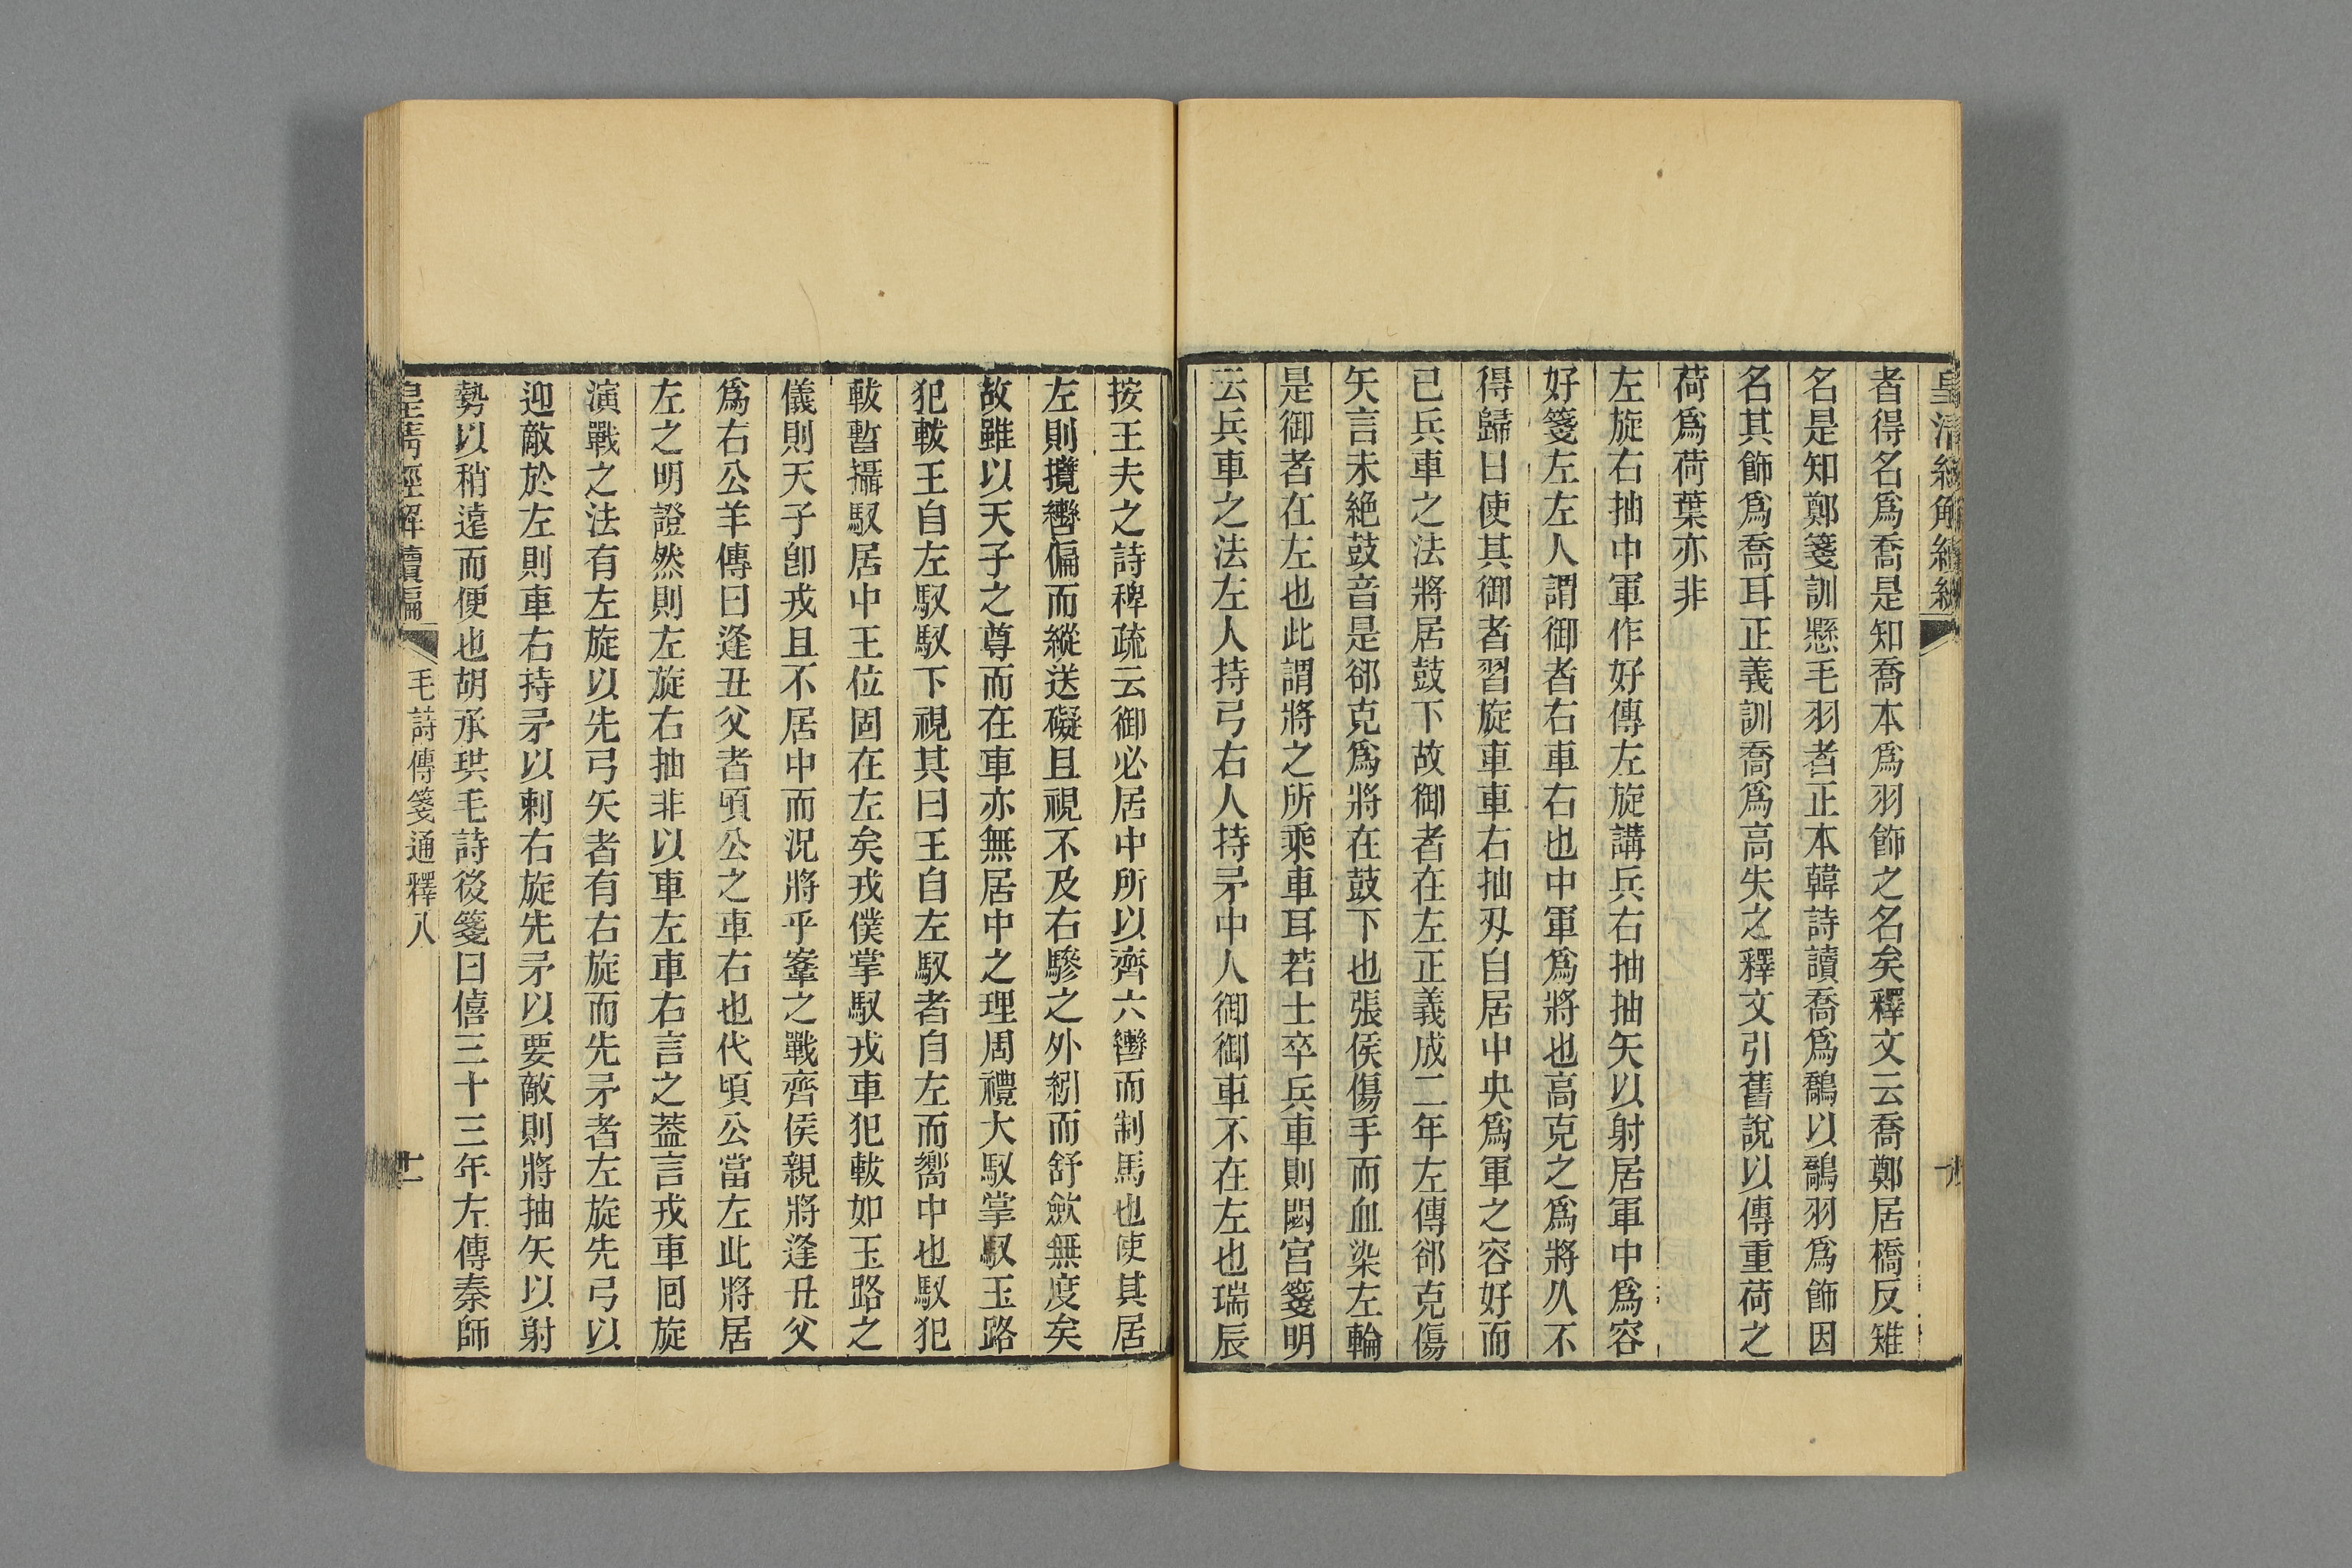 皇清經解續編
者得名爲喬是知喬本爲羽飾之名矣釋文云喬鄭居橋反雉
名是知鄭箋訓懸毛羽者正本韓詩讀喬爲鷮以鷮羽爲飾因
名其飾爲喬耳正義訓喬爲高失之釋文引舊說以傳重荷之
荷爲荷葉亦非
左旋右抽中軍作好傳左旋講兵右抽抽矢以射居軍中爲容
好箋左左人謂御者右車右也中軍爲將也高克之爲將久不
得歸日使其御者習旋車車右抽刄自居中央爲軍之容好而
已兵車之法將居鼓下故御者在左正義成二年左傳郤克傷
矢言未絶鼓音是郤克爲將在鼓下也張侯傷手而血染左輪
是御者在左也此謂將之所乘車耳若士卒兵車則閟宮箋明
云兵車之法左人持弓右人持矛中人御御車不在左也瑞辰
按王夫之詩稗疏云御必居中所以齊六轡而制馬也使其居
左則攬轡偏而縱送礙且視不及右驂之外紖而舒斂無度矣
故雖以天子之尊而在車亦無居中之理周禮大馭掌馭玉路
犯軷王自左馭馭下視其曰王自左馭者自左而嚮中也馭犯
軷暫攝馭居中王位固在左矣戎僕掌馭戎車犯軷如玉路之
儀則天子卽戎且不居中而況將乎鞌之戰齊侯親將逢丑父
爲右公羊傳曰逢丑父者頃公之車右也代頃公當左此將居
左之明證然則左旋右抽非以車左車右言之葢言戎車回旋
演戰之法有左旋以先弓矢者有右旋而先矛者左旋先弓以
迎敵於左則車右持矛以刺右旋先矛以要敵則將抽矢以射
勢以稍遠而便也胡承珙毛詩後箋曰僖三十三年左傳秦師
皇淸經解續編
毛詩傳箋通釋八